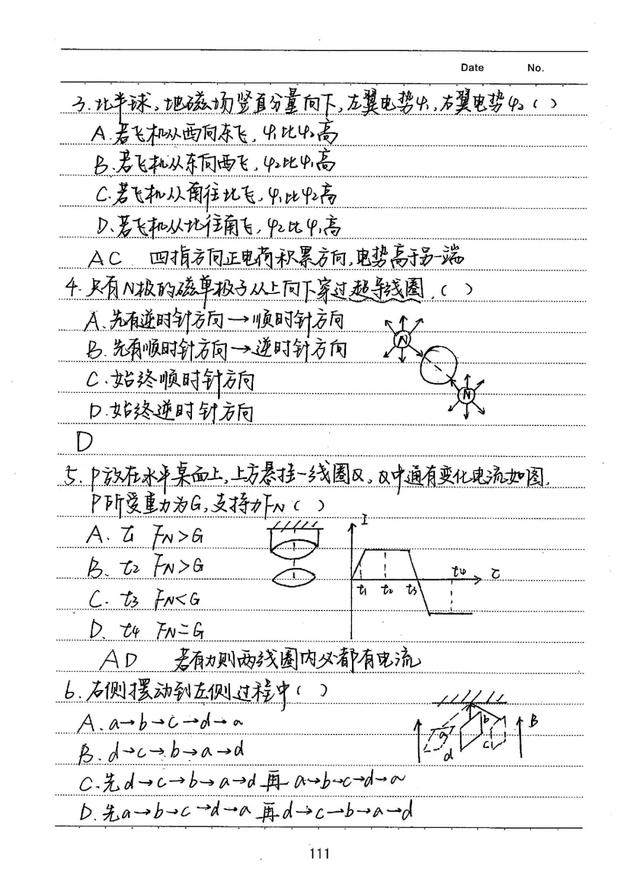 Date No.
3.北半球,地磁场竖直分量向下,左翼电势φ₁,右翼电势φ₂( )
A.若飞机从西向东飞,φ₁比φ₂高
B.若飞机从东向西飞,φ₂比φ₁高
C.若飞机从南往北飞,φ₁比φ₂高
D.若飞机从北往南飞,φ₂比φ₁高
AC 四指方向正电荷积累方向,电势高于另一端
4.只有N极的磁单极子从上向下穿过超导线圈.( )
A.先有逆时针方向→顺时针方向
B.先有顺时针方向→逆时针方向
C.始终顺时针方向
D.始终逆时针方向
N
N
D
5.P放在水平桌面上,上方悬挂一线圈Q,Q中通有变化电流如图.
P所受重力为G,支持力FN( )
A. t₁ FN>G
B. t₂ FN>G
C. t₃ FN<G
D. t₄ FN=G
I
t₁ t₂ t₃ t₄ t
AD 若有力则两线圈内必都有电流
6.右侧摆动到左侧过程中( )
A.a→b→c→d→a
B.d→c→b→a→d
C.先d→c→b→a→d再a→b→c→d→a
D.先a→b→c→d→a再d→c→b→a→d
a b c d B
111